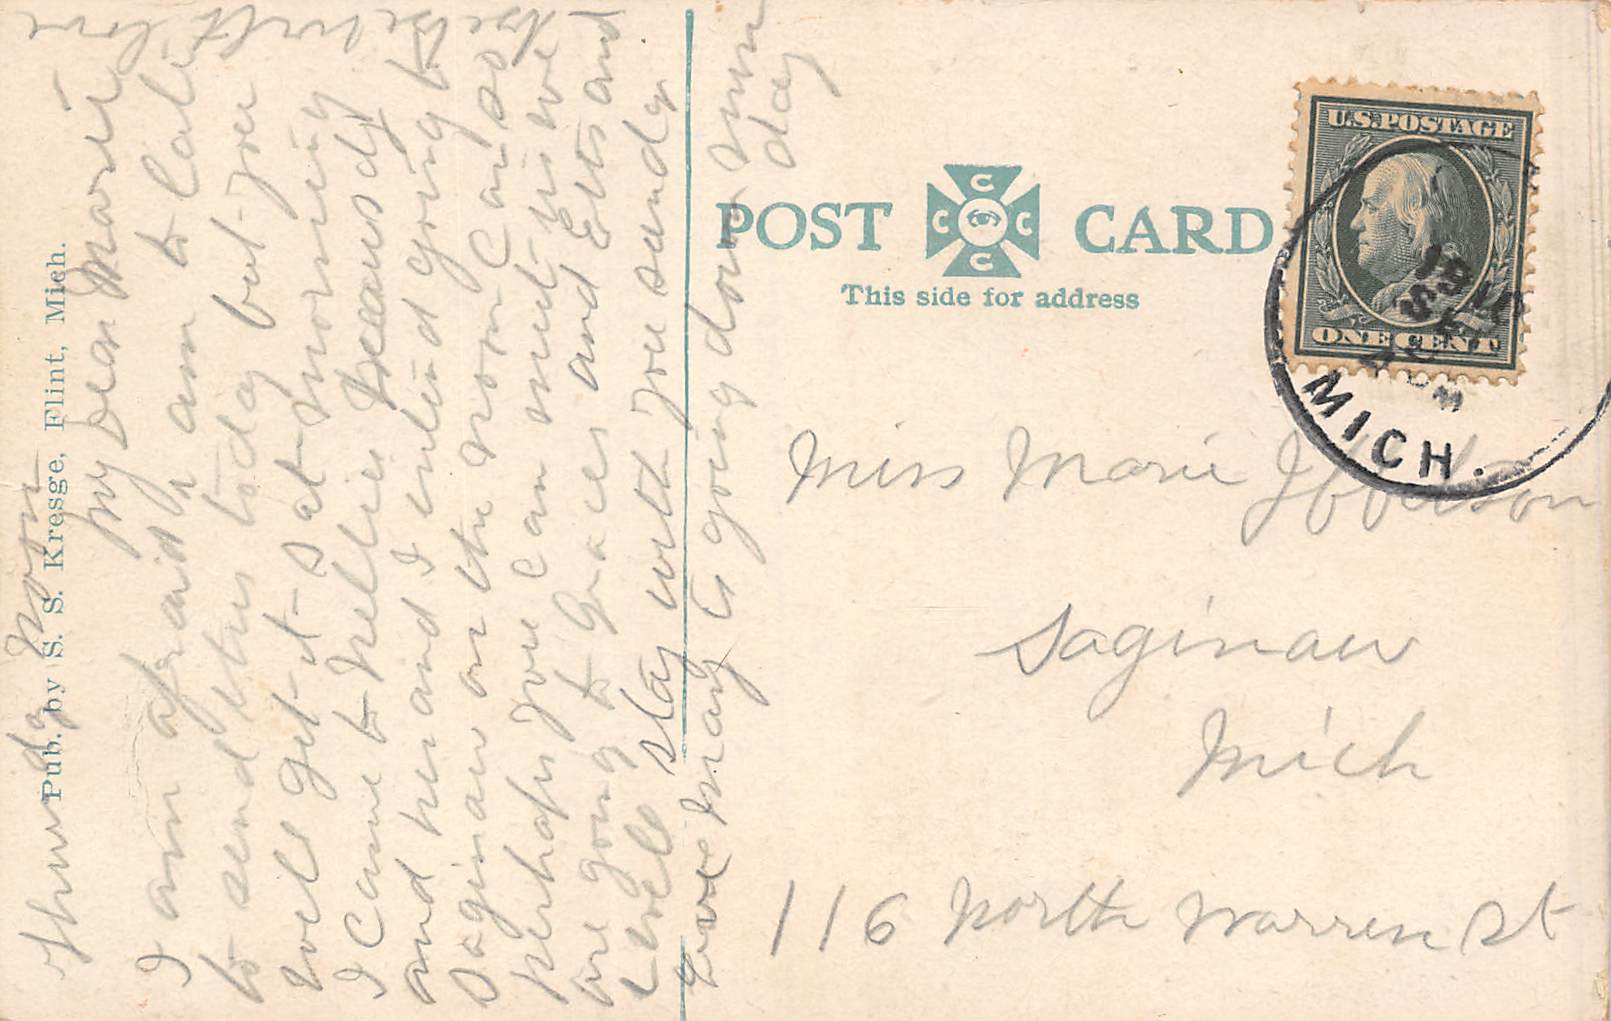 Thursday Noon
My Dear Marie
I am afraid I am to late
to send this today but you
will get it Sat morning
I came to Nellies
and her and I entend going to
Saginaw on the noon Car so
perhaps you can meet us we
are going to Graces and Ets and
I will stay with you sunday
Mary is going down sun
day
with love
Pub. by S. S. Kresge, Flint, Mich.
POST CARD
C C C C
This side for address
U.S. POSTAGE
ONE CENT
MICH.
Miss Marie Jefferson
Saginaw
Mich
116 North Warren St